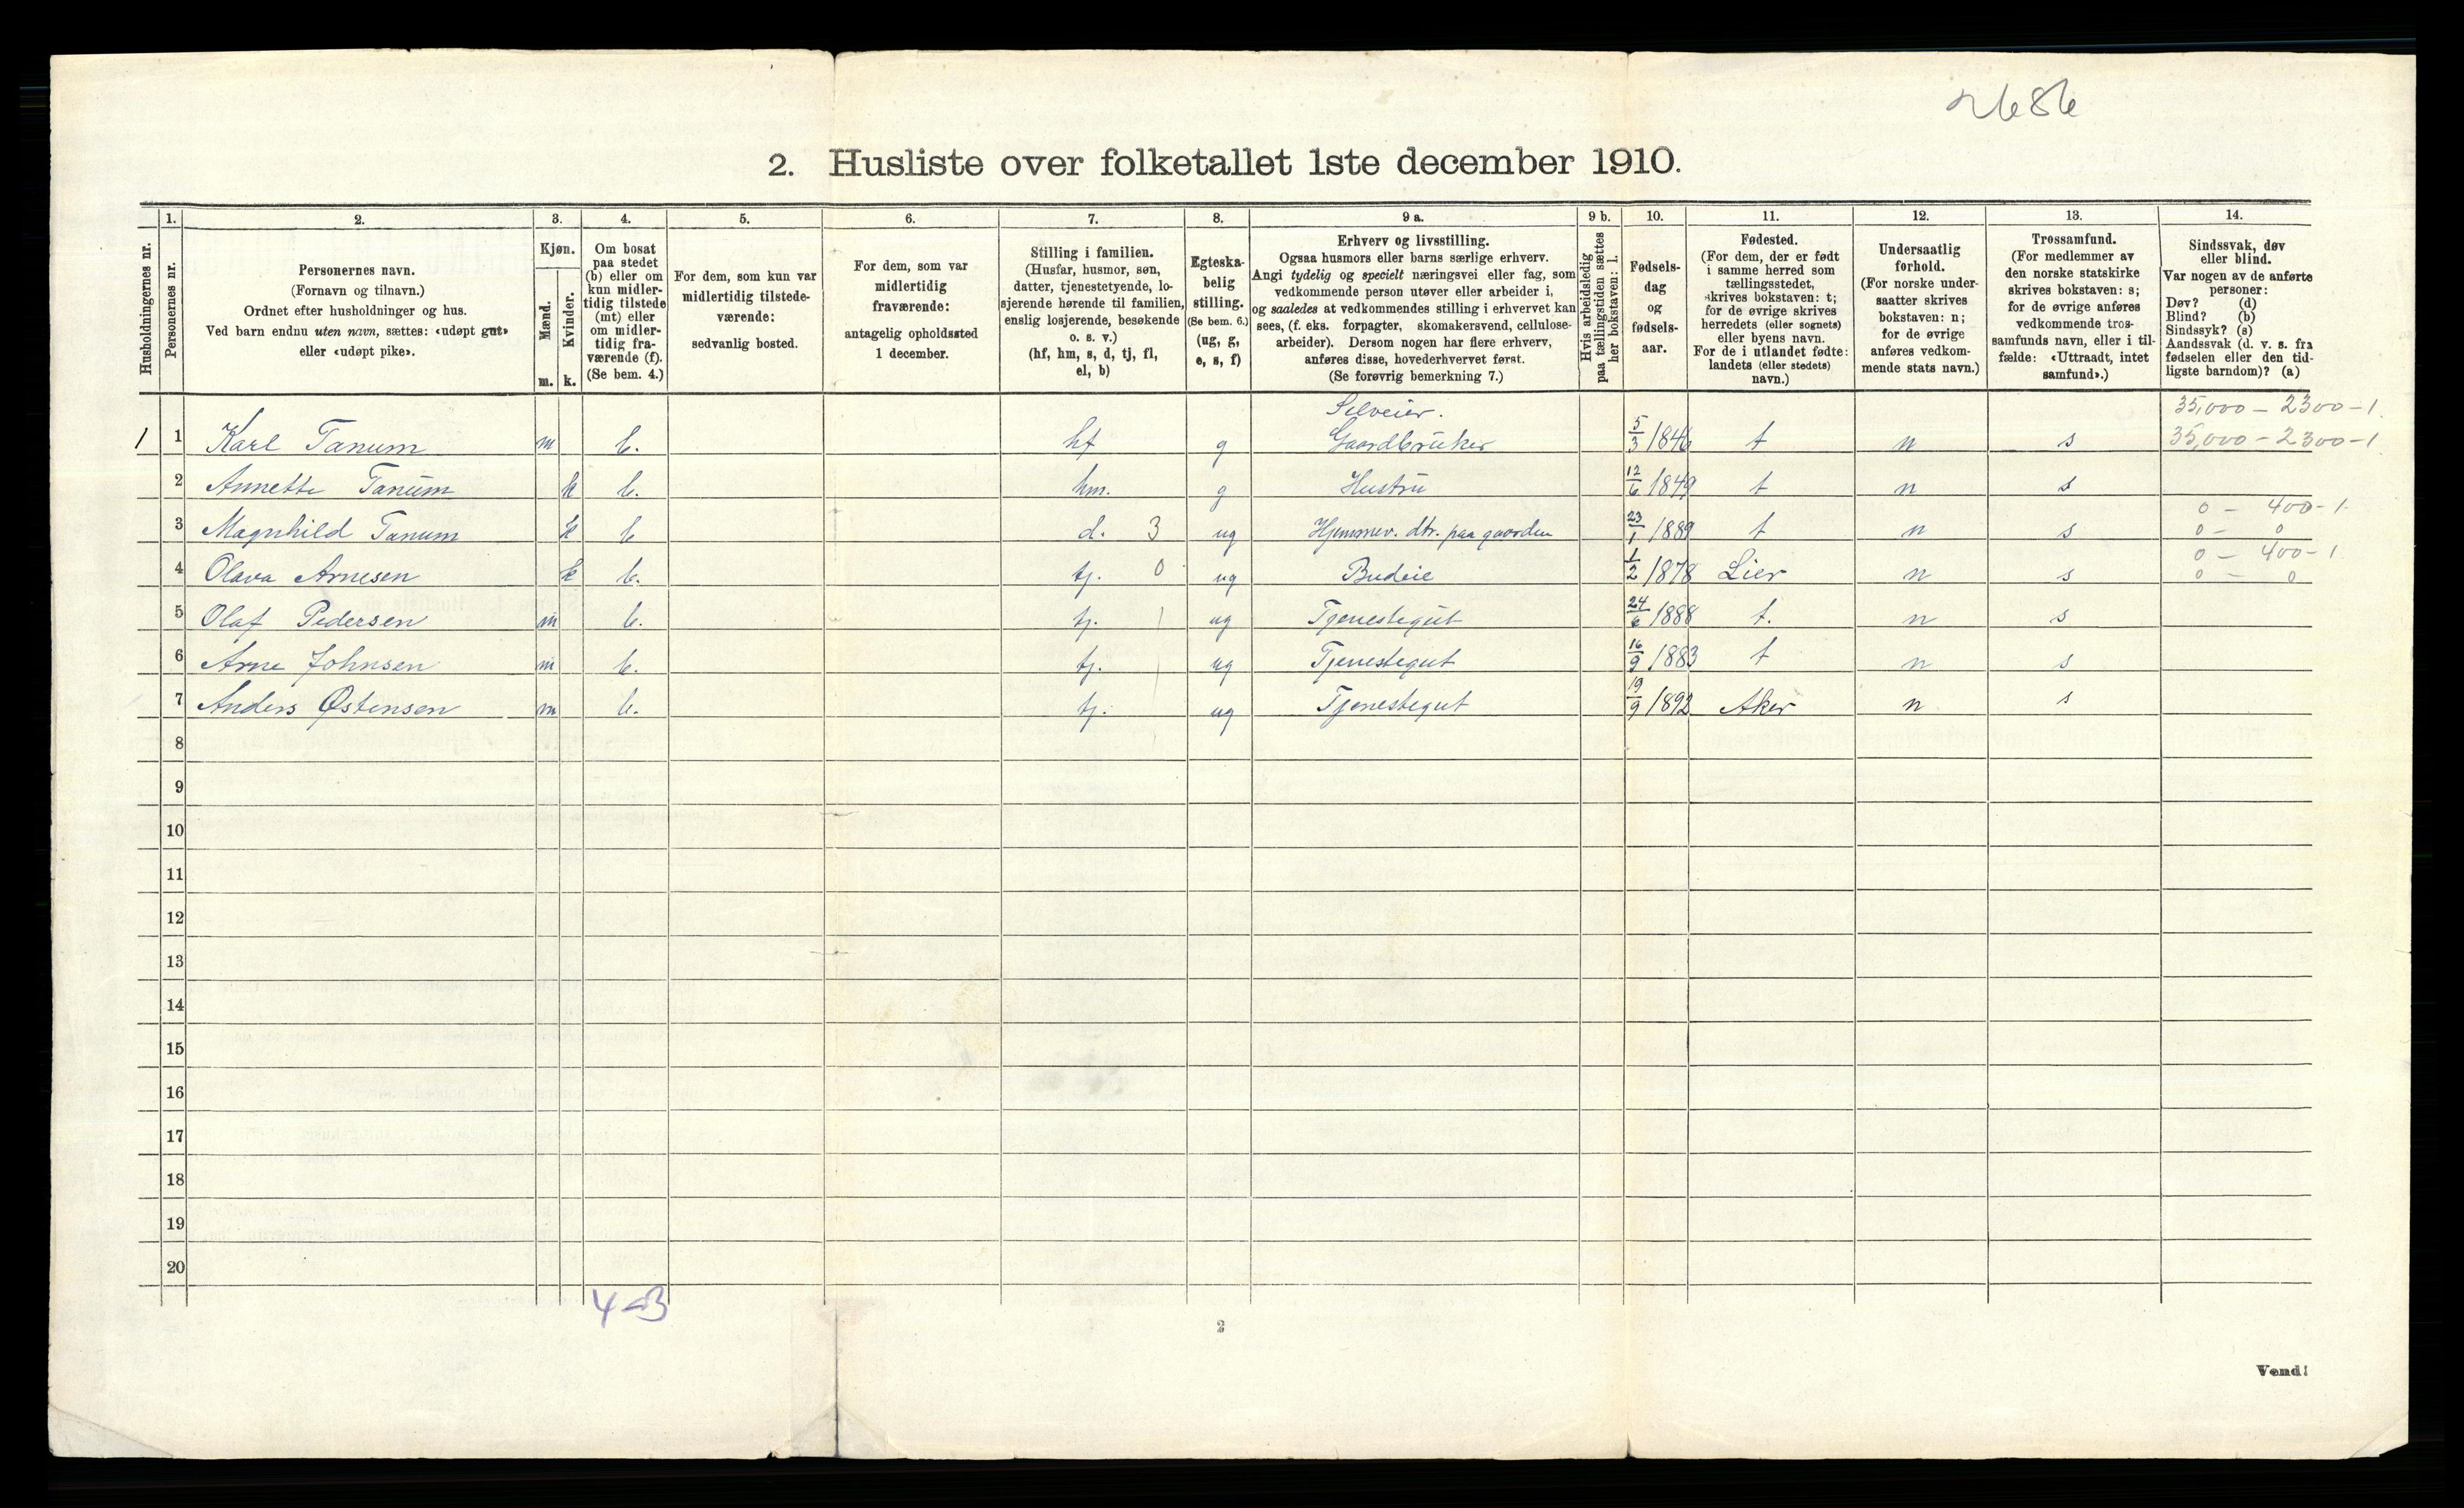 2686
2. Husliste over folketallet 1ste december 1910.
Husholdningernes nr.
1.
Personernes nr.
2.
Personernes navn.
(Fornavn og tilnavn.)
Ordnet efter husholdninger og hus.
Ved barn endnu uten navn, sættes: «udøpt gut»
eller «udøpt pike».
3.
Kjøn.
Mænd.
m.
Kvinder.
k.
4.
Om bosat
paa stedet
(b) eller om
kun midler-
tidig tilstede
(mt) eller
om midler-
tidig fra-
værende (f).
(Se bem. 4.)
5.
For dem, som kun var
midlertidig tilstede-
værende:
sedvanlig bosted.
6.
For dem, som var
midlertidig
fraværende:
antagelig opholdssted
1 december.
7.
Stilling i familien.
(Husfar, husmor, søn,
datter, tjenestetyende, lo-
sjerende hørende til familien,
enslig losjerende, besøkende
o. s. v.)
(hf, hm, s, d, tj, fl,
el, b)
8.
Egteska-
belig
stilling.
(Se bem. 6.)
(ug, g,
e, s, f)
9 a.
Erhverv og livsstilling.
Ogsaa husmors eller barns særlige erhverv.
Angi tydelig og specielt næringsvei eller fag, som
vedkommende person utøver eller arbeider i,
og saaledes at vedkommendes stilling i erhvervet kan
sees, (f. eks. forpagter, skomakersvend, cellulose-
arbeider). Dersom nogen har flere erhverv,
anføres disse, hovederhvervet først.
(Se forøvrig bemerkning 7.)
9 b.
Hvis arbeidsledig
paa tællingstiden sættes
her bokstaven: l.
10.
Fødsels-
dag
og
fødsels-
aar.
11.
Fødested.
(For dem, der er født
i samme herred som
tællingsstedet,
skrives bokstaven: t;
for de øvrige skrives
herredets (eller sognets)
eller byens navn.
For de i utlandet fødte:
landets (eller stedets)
navn.)
12.
Undersaatlig
forhold.
(For norske under-
saatter skrives
bokstaven: n;
for de øvrige
anføres vedkom-
mende stats navn.)
13.
Trossamfund.
(For medlemmer av
den norske statskirke
skrives bokstaven: s;
for de øvrige anføres
vedkommende tros-
samfunds navn, eller i til-
fælde: «Uttraadt, intet
samfund».)
14.
Sindssvak, døv
eller blind.
Var nogen av de anførte
personer:
Døv? (d)
Blind? (b)
Sindssyk? (s)
Aandssvak (d. v. s. fra
fødselen eller den tid-
ligste barndom)? (a)
Selveier. 35,000 - 2300 - 1.
1 1 Karl Tanum m b. hf g Gaardbruker 5/3 1846 t n s 35,000 - 2300 - 1
2 Annette Tanum k b. hm. g Hustru 12/6 1849 t n s
0 - 400 - 1.
3 Magnhild Tanum k b d. 3 ug Hjemmev. dtr. paa gaarden 23/1 1889 t n s 0 - 0
0 - 400 - 1
4 Olava Arnesen k b. tj. 0 ug Budeie 1/2 1878 Lier n s 0 - 0
5 Olaf Pedersen m b. tj. ug Tjenestegut 24/6 1888 t. n s
6 Arne Johnsen m b. tj. ug Tjenestegut 16/9 1883 t n s
7 Anders Østensen m b. tj. ug Tjenestegut 19/9 1892 Aker n s
8
9
10
11
12
13
14
15
16
17
18
19
20
4-3
2
Vend!